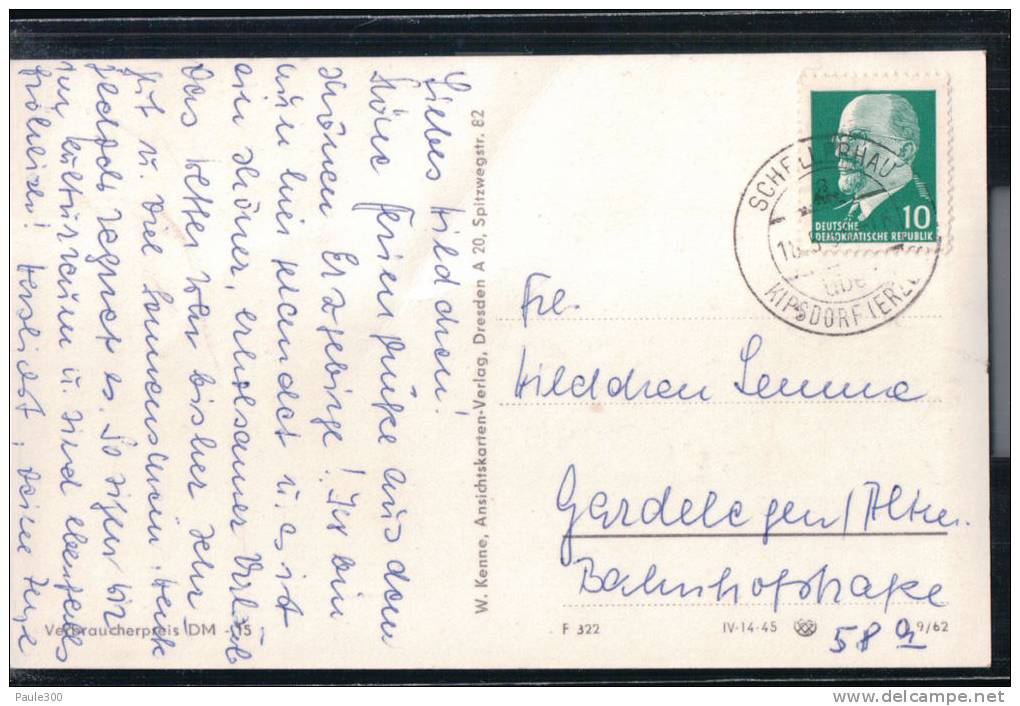 Liebes Hildchen!
Schöne Feriengrüße aus dem
schönen Erzgebirge! Ich bin
nun hier gelandet u. es ist
ein schöner, erholsamer Urlaub
Das Wetter war bisher sehr
gut u. viel Sonnenschein. Heute
jedoch regnet es. So sitzen wir
im Kulturraum u. sind ebenfalls
fröhlich! Herzlichst, deine Inge
Verbraucherpreis DM -,15
W. Kenne, Ansichtskarten-Verlag, Dresden A 20, Spitzwegstr. 82
10
DEUTSCHE
DEMOKRATISCHE REPUBLIK
SCHELLERHAU
über
KIPSDORF (ERZG
Frl.
Hildchen
Gardelegen/Altm.
Bahnhofstraße
58 a
F 322
IV-14-45
9/62
Paule300
www.delcampe.net